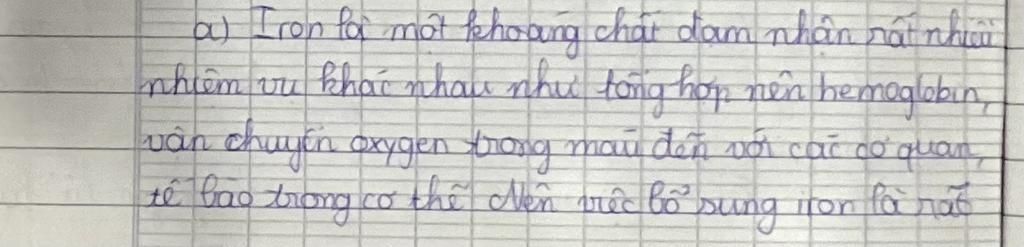 a) Iron là một khoáng chất đảm nhận rất nhiều
nhiệm vụ khác nhau như tổng hợp nên hemoglobin,
vận chuyển oxygen trong máu đến với các cơ quan,
tế bào trong cơ thể. Nên việc bổ sung iron là rất